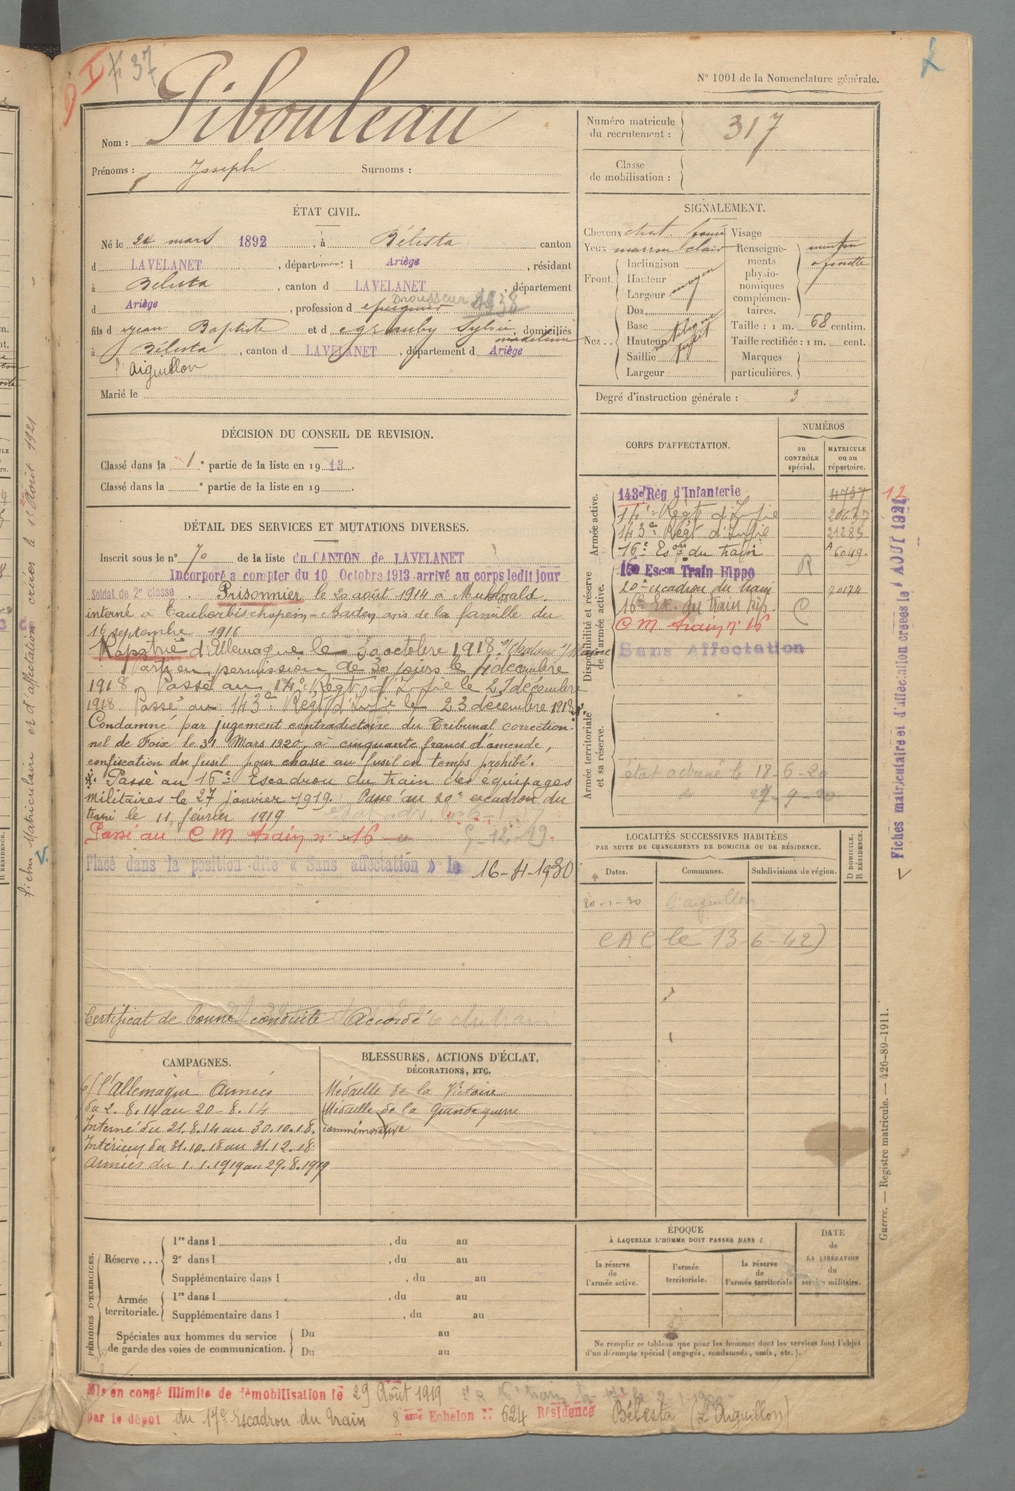 I
37
N° 1001 de la Nomenclature générale.
Nom : Pibouleau
Prénoms : Joseph Surnoms :
Numéro matricule du recrutement : 317
Classe de mobilisation :
ÉTAT CIVIL.
Né le 24 mars 1892, à Bélesta canton
d LAVELANET, département d Ariège, résidant
à Bélesta, canton d LAVELANET, département
d Ariège, profession d
fils d Jean Baptiste et d Sylvie madeleine domiciliés
à Bélesta, canton d LAVELANET, département d Ariège
l'Aiguillon
Marié le
SIGNALEMENT.
Cheveux chat. foncé Visage
Yeux marron clair Renseignements physionomiques complémentaires. menton à fossette
Front. Inclinaison
Hauteur moyen
Largeur
Nez.. Dos
Base
Hauteur
Saillie
Largeur
Taille : 1 m. 68 centim.
Taille rectifiée : 1 m. cent.
Marques particulières.
Degré d'instruction générale : 3
DÉCISION DU CONSEIL DE REVISION.
Classé dans la 1e partie de la liste en 1913
Classé dans la e partie de la liste en 19
DÉTAIL DES SERVICES ET MUTATIONS DIVERSES.
Inscrit sous le n° 70 de la liste du CANTON de LAVELANET
Incorporé a compter du 10 Octobre 1913 arrivé au corps ledit jour
Soldat de 2e classe. Prisonnier le 20 août 1914 à
interné à avis de la famille du
16 septembre 1916
Rapatrié d'Allemagne le 30 octobre 1918
Parti en permission de 30 jours le 4 décembre
1918. Passé au 14e Régt d'Infie le 21 décembre
1918 Passé au 143e Régt d'Infie le 23 décembre 1918.
Condamné par jugement contradictoire du Tribunal correction-
nel de Foix le 31 Mars 1920, à cinquante francs d'amende,
confiscation du fusil pour chasse au fusil en temps prohibé.
Passé au 16e Escadron du train des équipages
militaires le 27 janvier 1919. Passé au 20e escadron du
train le 11 février 1919
Passé au C M train n° 16
Placé dans la position dite « Sans affectation » le 16-4-1930
Certificat de bonne conduite Accordé
CORPS D'AFFECTATION.
NUMÉROS
au CONTRÔLE spécial.
MATRICULE ou au répertoire.
Armée active.
143e Rég d'Infanterie 4737
14e Régt d'Infie
143e Régt d'Infie 21285
16e Eson du train 6049
Disponibilité et réserve de l'armée active.
16e Escon Train Hippo R
20e escadron du train 20174
16e Es. du train hip. C
C M train n° 16
Sans Affectation
Armée territoriale et sa réserve.
état adressé le 18-6-20
do 27-9-20
Fiches matriculaire et d'affectation créées le 1 AOUT 1921
12
LOCALITÉS SUCCESSIVES HABITÉES
PAR SUITE DE CHANGEMENTS DE DOMICILE OU DE RÉSIDENCE.
Dates. Communes. Subdivisions de région. D DOMICILE. R RÉSIDENCE.
20-1-30 L'aiguillon
CAC le 13-6-42)
CAMPAGNES.
c/ l'allemagne Armées
du 2.8.14 au 20-8.14
Interné du 21.8.14 au 30.10.18.
Intérieur du 31.10.18 au 31.12.18
Armées du 1.1.1919 au 29.8.1919
BLESSURES, ACTIONS D'ÉCLAT, DÉCORATIONS, ETC.
Médaille de la Victoire
Médaille de la grande guerre
commémorative
PÉRIODES D'EXERCICES.
Réserve... 1re dans l , du au
2e dans l , du au
Supplémentaire dans l , du au
Armée territoriale. 1re dans l , du au
Supplémentaire dans l , du au
Spéciales aux hommes du service de garde des voies de communication. Du au
Du au
ÉPOQUE
À LAQUELLE L'HOMME DOIT PASSER DANS :
la réserve de l'armée active.
l'armée territoriale.
la réserve de l'armée territoriale
DATE de LA LIBÉRATION du service militaire.
Ne remplir ce tableau que pour les hommes dont les services font l'objet
d'un décompte spécial (engagés, condamnés, omis, etc.).
Guerre. — Registre matricule. — 426-89-1911.
Mis en congé illimité de démobilisation le 29 Août 1919
par le dépôt du 17e Escadron du train 8eme Echelon N° 624 Résidence Bélesta (L'Aiguillon)